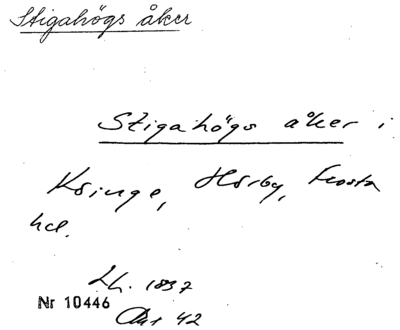 Stigahögs åker
Stigahögs åker i
Kringe, Hörby, Frosta
hd.
Lh. 1837
Nr 10446
Akt 42